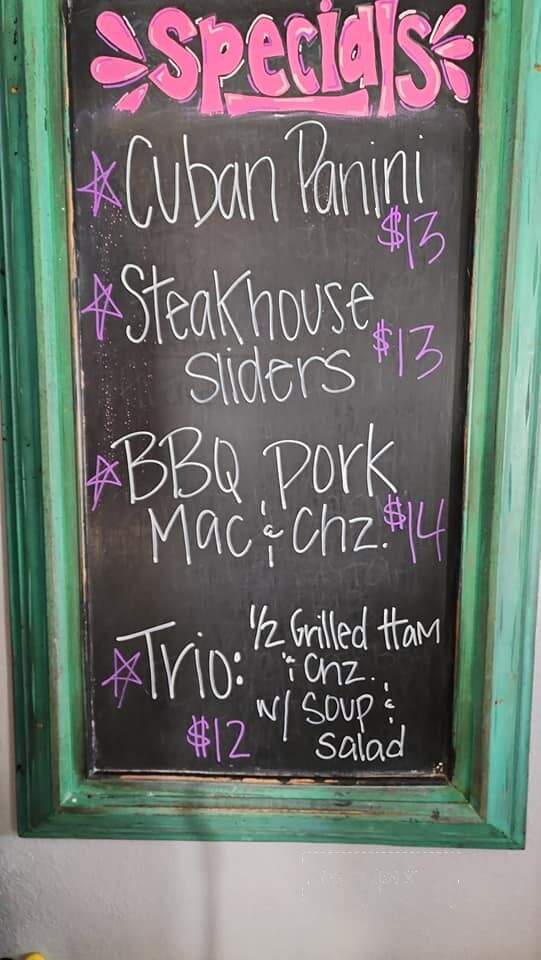 Specials
Cuban Panini
$13
Steakhouse
Sliders $13
BBQ Pork
Mac & Chz. $14
Trio: 1/2 Grilled Ham
& Chz.
w/ Soup &
$12 Salad